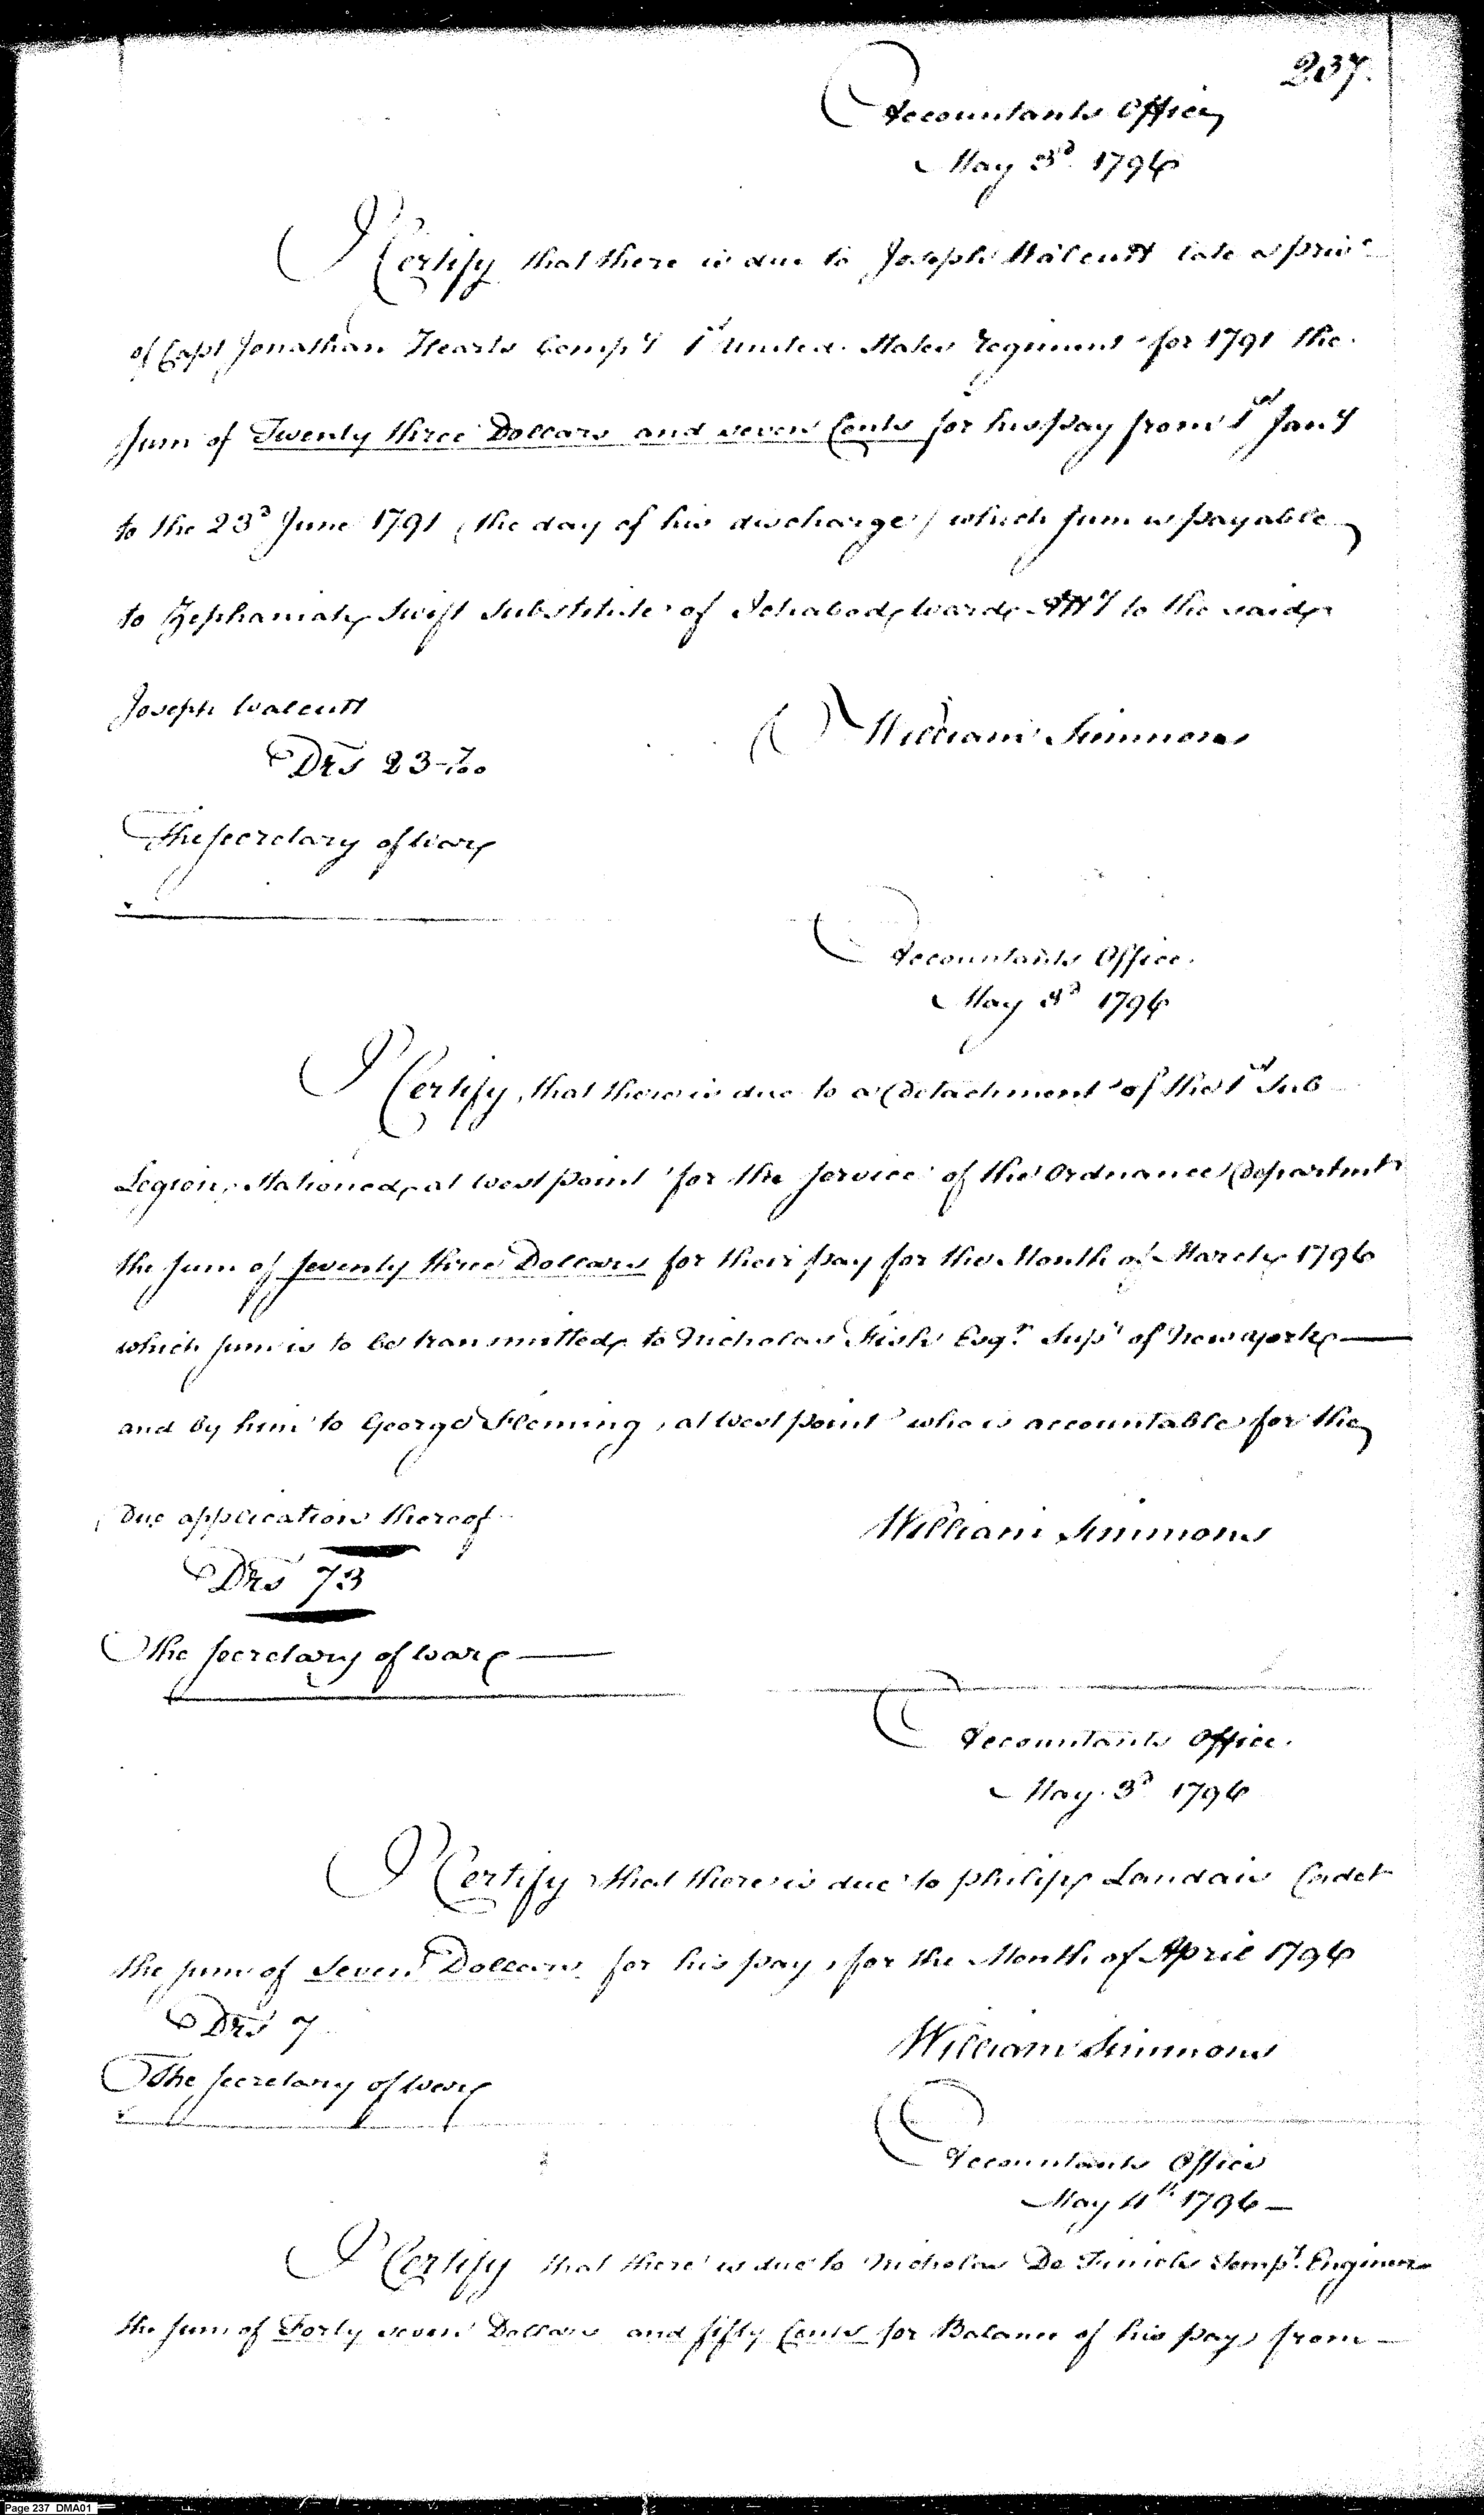 237.
Accountants Office
May 3d 1796
I Certify that there is due to Joseph Walcutt late a priv.
of Capt Jonathan Hearts Compy 1st United States Regiment for 1791 the
Sum of Twenty three Dollars and seven Cents for his pay from 1st Jany
to the 23d June 1791 (the day of his discharge) which sum is payable
to Zephaniah Swift Substitute of Ichabod Ward Atty to the said
Joseph Walcutt
William Simmons
Drs 23-7/100
The Secretary of War
Accountants Office.
May 3d 1796
I Certify, that there is due to a Detachment of the 1st Sub
Legion, Stationed at West point for the Service of the Ordnance Departmt
the Sum of Seventy three Dollars for their pay for the Month of March 1796
which sum is to be transmitted to Nicholas Fish Esqr. Supt of New york
and by him to George Fleming, at West point who is accountable for the
Due application thereof
William Simmons
Drs 73
The Secretary of War
Accountants Office.
May 3d 1796
I Certify that there is due to philip Landais Cadet
the sum of Seven Dollars for his pay, for the Month of April 1796
Drs 7
William Simmons
The Secretary of War
Accountants Office
May 4th 1796
I Certify that there is due to Nicholas De Tempy. Engineer
the sum of Forty seven Dollars and fifty Cents for Balance of his pay from
Page 237 DMA01